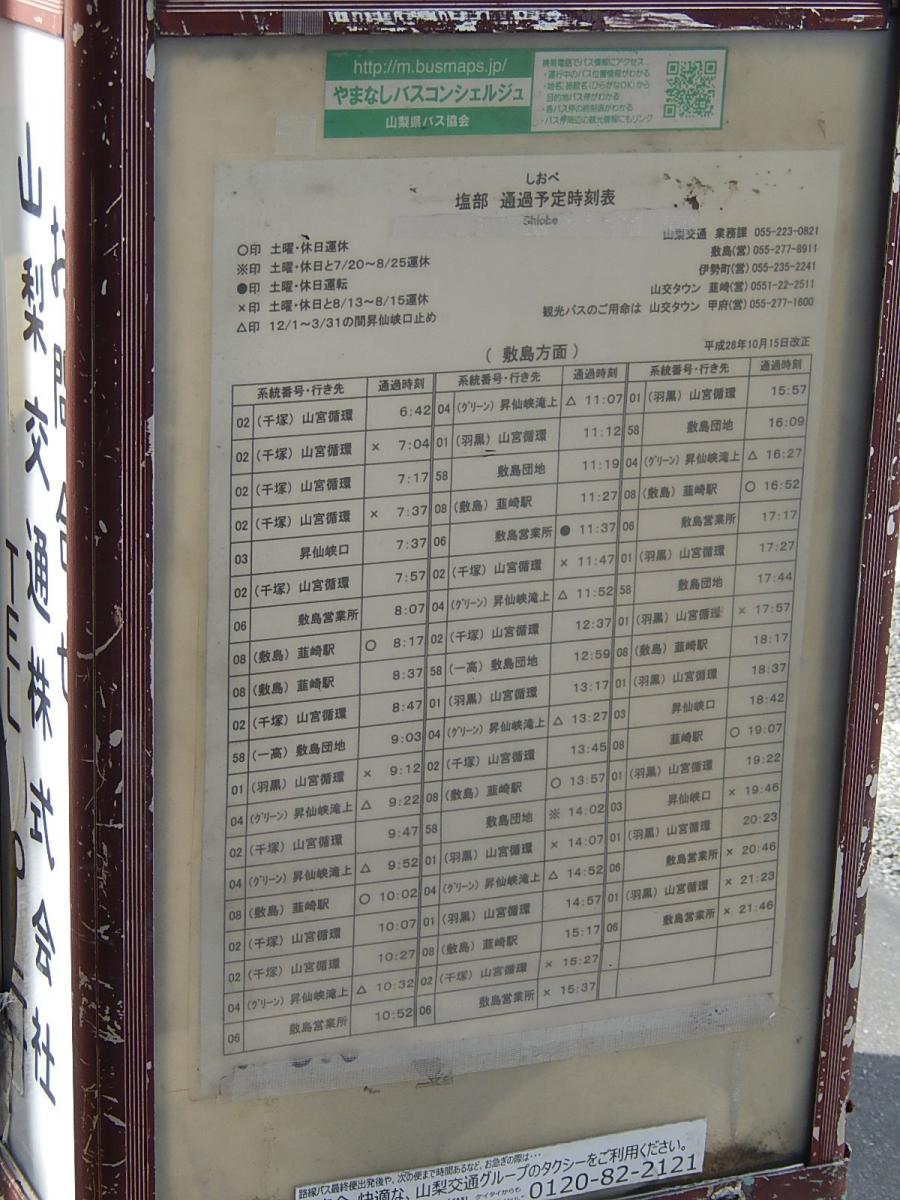 http://m.busmaps.jp/
やまなしバスコンシェルジュ
山梨県バス協会
携帯電話でバス情報にアクセス…
・運行中のバス位置情報がわかる
・地名、施設名(ひらがなOK)から
目的地バス停がわかる
・各バス停の時刻表がわかる
・バス停周辺の観光情報にもリンク
しおべ
塩部 通過予定時刻表
Shiobe
○印 土曜・休日運休
※印 土曜・休日と7/20～8/25運休
●印 土曜・休日運転
×印 土曜・休日と8/13～8/15運休
△印 12/1～3/31の間昇仙峡口止め
山梨交通 業務課 055-223-0821
敷島(営) 055-277-8911
伊勢町(営) 055-235-2241
山交タウン 韮崎(営) 0551-22-2511
観光バスのご用命は 山交タウン 甲府(営) 055-277-1600
( 敷島方面 )
平成28年10月15日改正
系統番号・行き先 通過時刻
02 (千塚) 山宮循環 6:42
02 (千塚) 山宮循環 × 7:04
02 (千塚) 山宮循環 7:17
02 (千塚) 山宮循環 × 7:37
03 昇仙峡口 7:37
02 (千塚) 山宮循環 7:57
06 敷島営業所 8:07
08 (敷島) 韮崎駅 ○ 8:17
08 (敷島) 韮崎駅 8:37
02 (千塚) 山宮循環 8:47
58 (一高) 敷島団地 9:03
01 (羽黒) 山宮循環 × 9:12
04 (グリーン) 昇仙峡滝上 △ 9:22
02 (千塚) 山宮循環 9:47
04 (グリーン) 昇仙峡滝上 △ 9:52
08 (敷島) 韮崎駅 ○ 10:02
02 (千塚) 山宮循環 10:07
02 (千塚) 山宮循環 10:27
04 (グリーン) 昇仙峡滝上 △ 10:32
06 敷島営業所 10:52
系統番号・行き先 通過時刻
04 (グリーン) 昇仙峡滝上 △ 11:07
01 (羽黒) 山宮循環 11:12
58 敷島団地 11:19
08 (敷島) 韮崎駅 11:27
06 敷島営業所 ● 11:37
02 (千塚) 山宮循環 × 11:47
04 (グリーン) 昇仙峡滝上 △ 11:52
02 (千塚) 山宮循環 12:37
58 (一高) 敷島団地 12:59
01 (羽黒) 山宮循環 13:17
04 (グリーン) 昇仙峡滝上 △ 13:27
02 (千塚) 山宮循環 13:45
08 (敷島) 韮崎駅 ○ 13:57
58 敷島団地 ※ 14:02
01 (羽黒) 山宮循環 × 14:07
04 (グリーン) 昇仙峡滝上 △ 14:52
01 (羽黒) 山宮循環 14:57
08 (敷島) 韮崎駅 15:17
02 (千塚) 山宮循環 × 15:27
06 敷島営業所 × 15:37
系統番号・行き先 通過時刻
01 (羽黒) 山宮循環 15:57
58 敷島団地 16:09
04 (グリーン) 昇仙峡滝上 △ 16:27
08 (敷島) 韮崎駅 ○ 16:52
06 敷島営業所 17:17
01 (羽黒) 山宮循環 17:27
58 敷島団地 17:44
01 (羽黒) 山宮循環 × 17:57
08 (敷島) 韮崎駅 18:17
01 (羽黒) 山宮循環 18:37
03 昇仙峡口 18:42
08 韮崎駅 ○ 19:07
01 (羽黒) 山宮循環 19:22
03 昇仙峡口 × 19:46
01 (羽黒) 山宮循環 20:23
06 敷島営業所 × 20:46
01 (羽黒) 山宮循環 × 21:23
06 敷島営業所 × 21:46
路線バス最終便出発後や、次の便まで時間あるなど、お急ぎの際は…
快適な、山梨交通グループのタクシーをご利用ください。
ケイタイからも 0120-82-2121
お問合せ
山梨交通株式会社
TEL